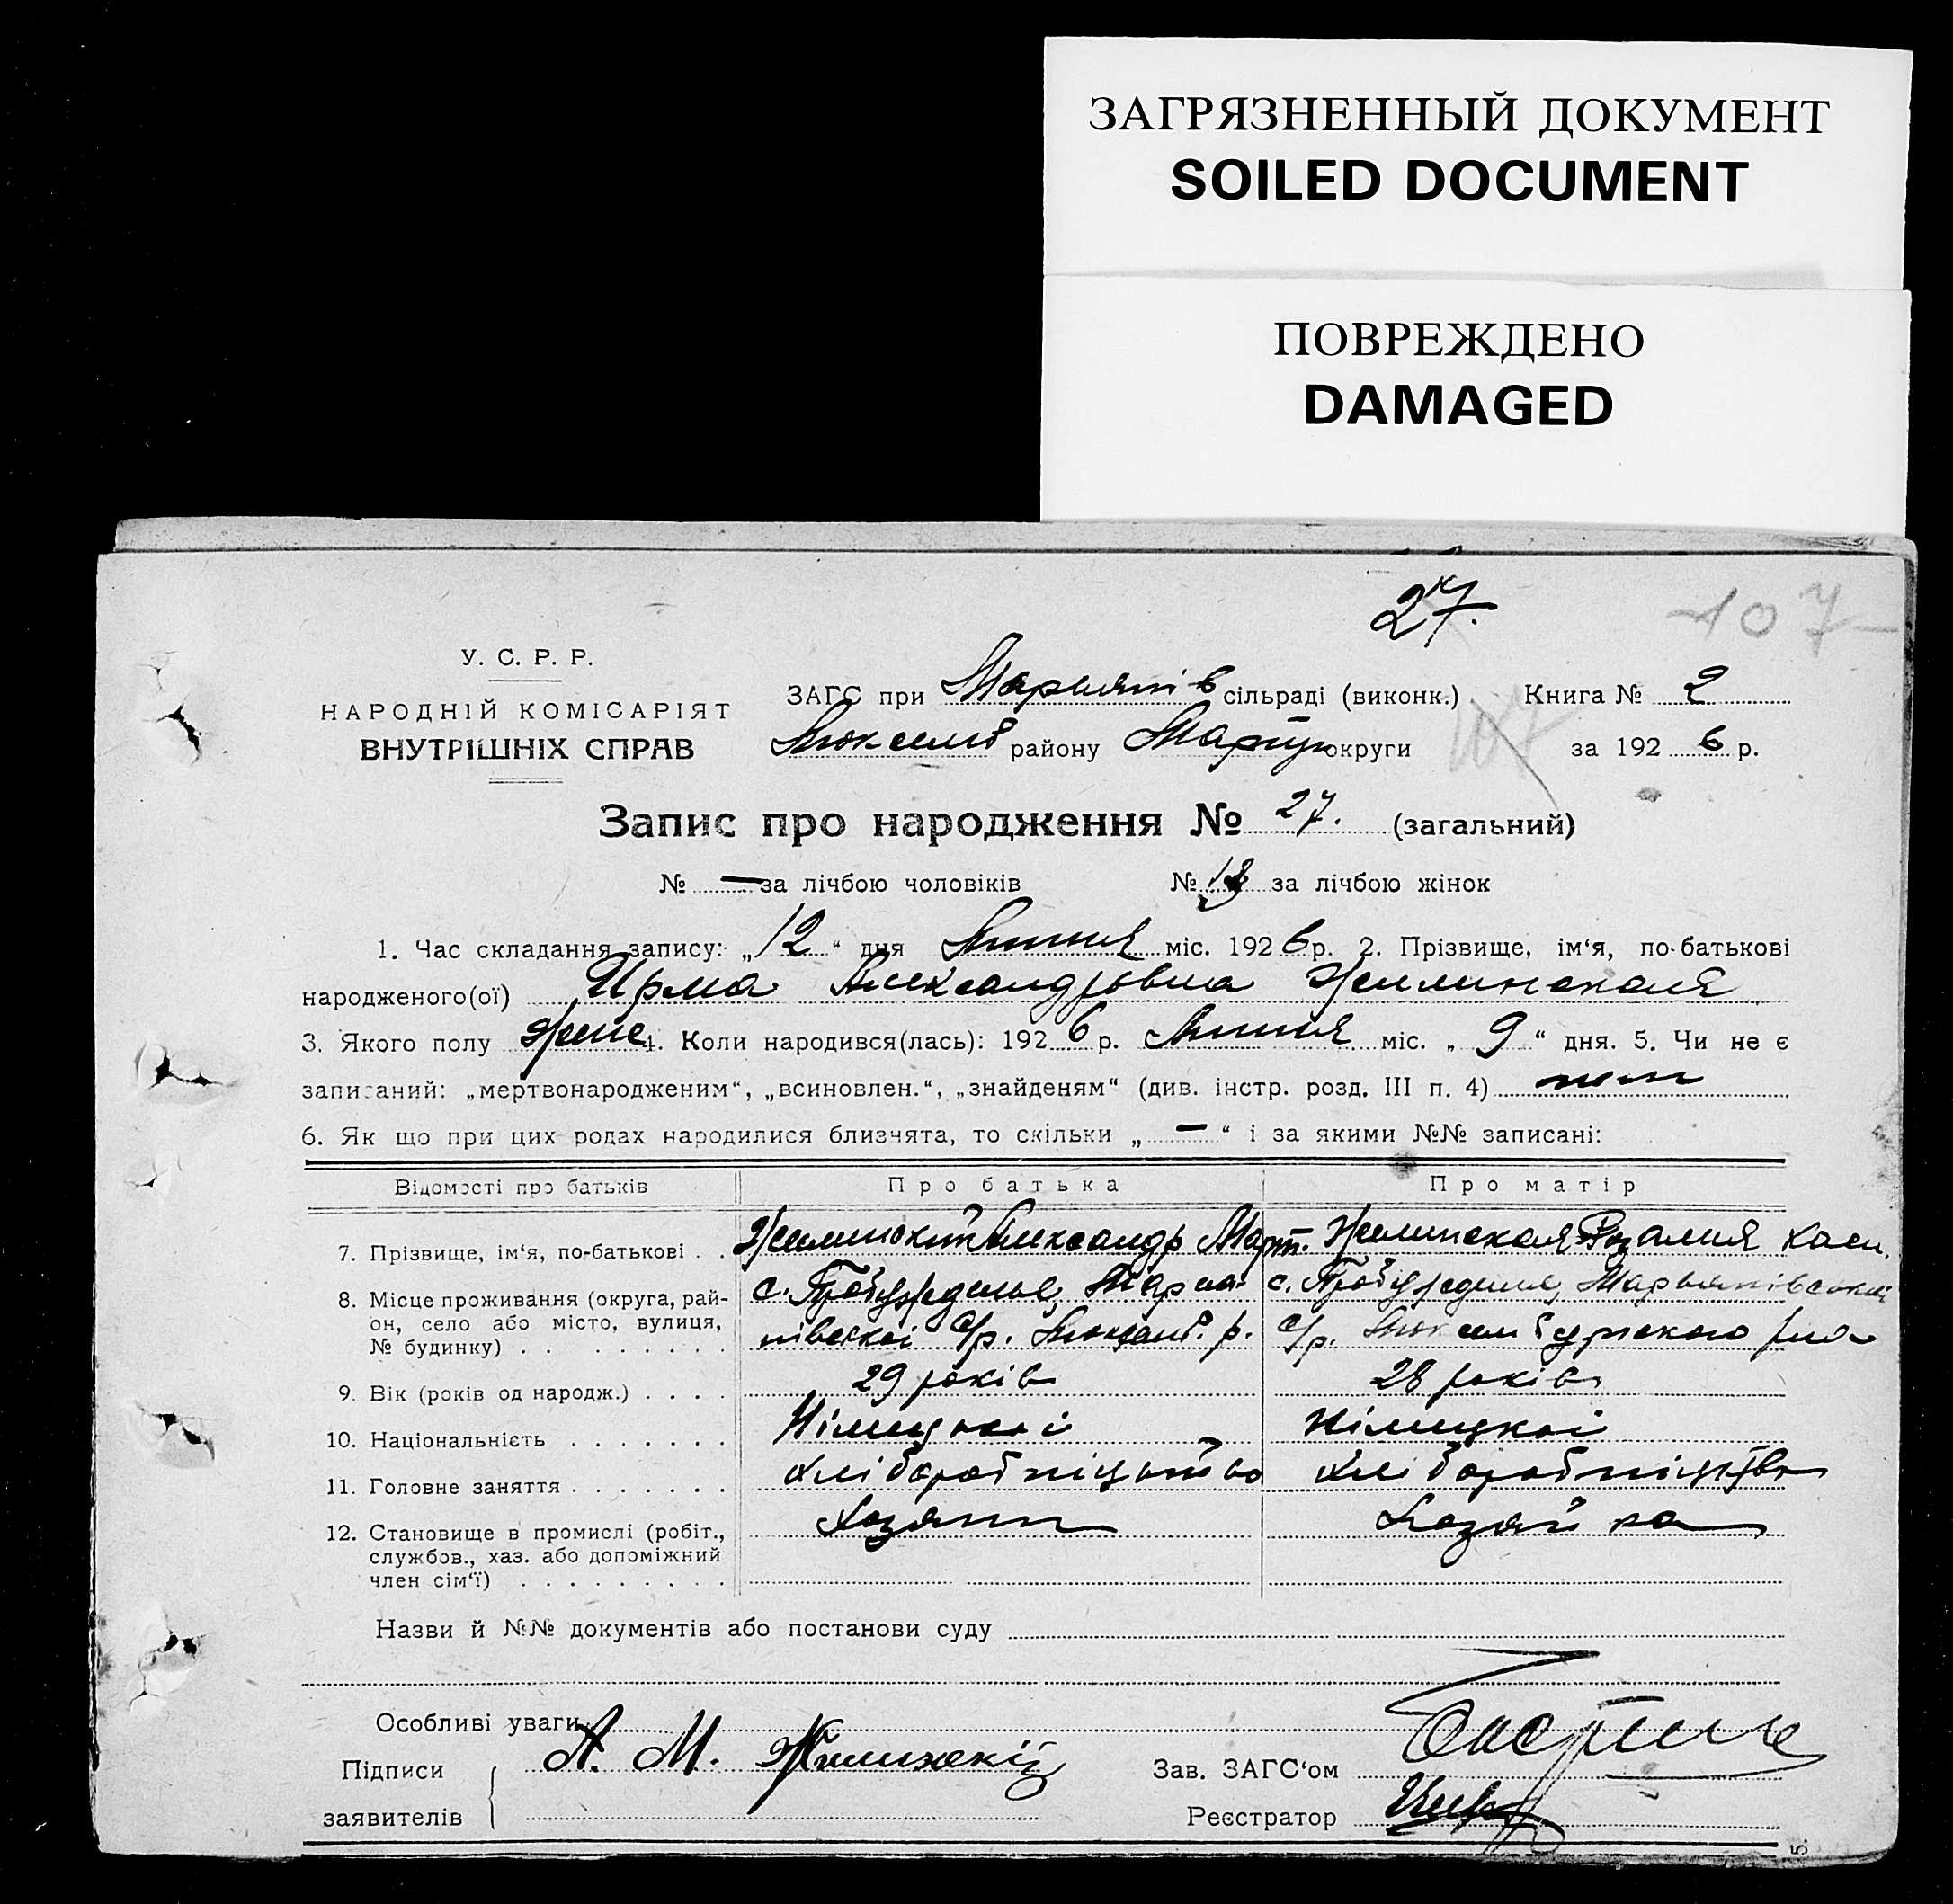 ЗАГРЯЗНЕННЫЙ ДОКУМЕНТ
SOILED DOCUMENT
ПОВРЕЖДЕНО
DAMAGED
27.
107
У. С. Р. Р.
НАРОДНІЙ КОМІСАРІЯТ
ВНУТРІШНІХ СПРАВ
ЗАГС при Марьянів сільраді (виконк.) Книга № 2
Люксемб району Маріуп округи 107 за 1926 р.
Запис про народження № 27. (загальний)
№ — за лічбою чоловіків № 13 за лічбою жінок
1. Час складання запису: „12“ дня Липня міс. 1926 р. 2. Прізвище, ім‘я, по-батькові
народженого(ої) Ирма Александровна Жилинская
3. Якого полу Жіне 4. Коли народився(лась): 1926 р. Липня міс. „9“ дня. 5. Чи не є
записаний: „мертвонародженим“, „всиновлен.“, „знайденям“ (див. інстр. розд. III п. 4)
6. Як що при цих родах народилися близнята, то скільки „—“ і за якими №№ записані:
Відомості про батьків Про батька Про матір
7. Прізвище, ім‘я, по-батькові . . Жилинский Александр Март. Жилинская Розалия
8. Місце проживання (округа, рай-
он, село або місто, вулиця,
№ будинку) . . . . . . . .
с. Пробуждение, Марья- с. Пробуждение, Марьянівської
нівської с/р. р. с/р. Люксембургского
9. Вік (років од народж.) . . . . 29 років 28 років
10. Національність . . . . . . . Німецької Німецкої
11. Головне заняття . . . . . . . Хліборобництво Хліборобництво
12. Становище в промислі (робіт.,
службов., хаз. або допоміжний
член сім‘ї) . . . . . . . . .
Хозяин Хозяйка
Назви й №№ документів або постанови суду
Особливі уваги
Підписи
заявителів
А. М. Жилинский
Зав. ЗАГС‘ом
Реєстратор
5.